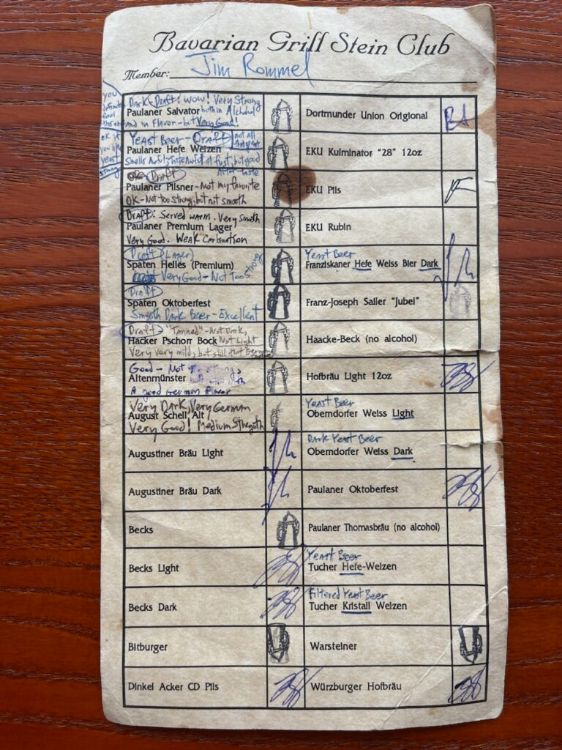 Bavarian Grill Stein Club
Member: Jim Rommel
you
Dark Draft! Wow! Very Strong
Paulaner Salvator both in Alcohol
and in Flavor - but Very Good!
Dortmunder Union Origional
Yeast Beer - Draft
Paulaner Hefe Weizen
at first, but good
EKU Kulminator "28" 12oz
Draft
Paulaner Pilsner - Not my favorite
OK - Not too strong, but not smooth
EKU Pils
Draft: Served warm. Very Smooth
Paulaner Premium Lager
Very Good. Weak Carbonation
EKU Rubin
Draft
Spaten Helles (Premium)
Very Good - Not Too Strong
Yeast Beer
Franziskaner Hefe Weiss Bier Dark
Draft
Spaten Oktoberfest
Smooth Dark Beer - Excellent
Franz-Joseph Sailer "Jubel"
Draft - "Tanned" - Not Dark,
Hacker Pschorr Bock Not Light
Very very mild, but still
Haacke-Beck (no alcohol)
Good - Not
Altenmünster
A good German Flavor
Hofbräu Light 12oz
Very Dark, Very German
August Schell Alt
Very Good! Medium Strength
Yeast Beer
Oberndorfer Weiss Light
Augustiner Bräu Light
Dark Yeast Beer
Oberndorfer Weiss Dark
Augustiner Bräu Dark
Paulaner Oktoberfest
Becks
Paulaner Thomasbräu (no alcohol)
Becks Light
Yeast Beer
Tucher Hefe-Weizen
Becks Dark
Filtered Yeast Beer
Tucher Kristall Weizen
Bitburger
Warsteiner
Dinkel Acker CD Pils
Würzburger Hofbräu